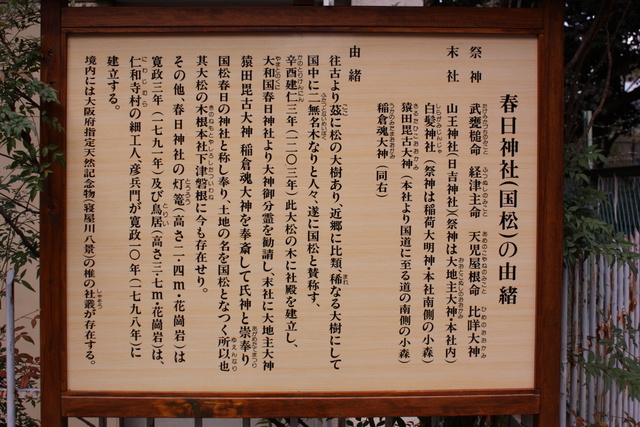 春日神社(国松)の由緒
祭神 武甕槌命 経津主命 天児屋根命 比咩大神
末社 山王神社(日吉神社)(祭神は大地主大神・本社内)
白髪神社(祭神は稲荷大明神・本社南側の小森)
猿田毘古大神(本社より国道に至る道の南側の小森)
稲倉魂大神(同右)
由緒
往古より茲に松の大樹あり、近郷に比類稀なる大樹にして
国中に二無名木なりと人々、遂に国松と賛称す、
辛酉建仁三年(一二〇三年)此大松の木に社殿を建立し、
大和国春日神社より大神御分霊を勧請し、末社に大地主大神
猿田毘古大神 稲倉魂大神を奉斎して氏神と崇奉り
国松春日の神社と称し奉り、土地の名を国松となつく所以也
其大松の木根本社下津磐根に今も存在せり。
その他、春日神社の灯篭(高さ二・四m・花崗岩)は
寛政三年(一七九一年)及び鳥居(高さ三・七m・花崗岩)は、
仁和寺村の細工人、彦兵門が寛政一〇年(一七九八年)に
建立する。
境内には大阪府指定天然記念物(寝屋川八景)の椎の社叢が存在する。